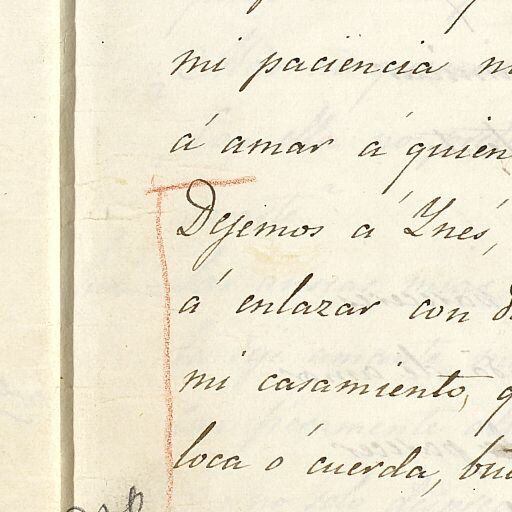 mi paciencia
á amar á quien
Dejemos á Ynés,
á enlazar con
mi casamiento,
loca ó cuerda,